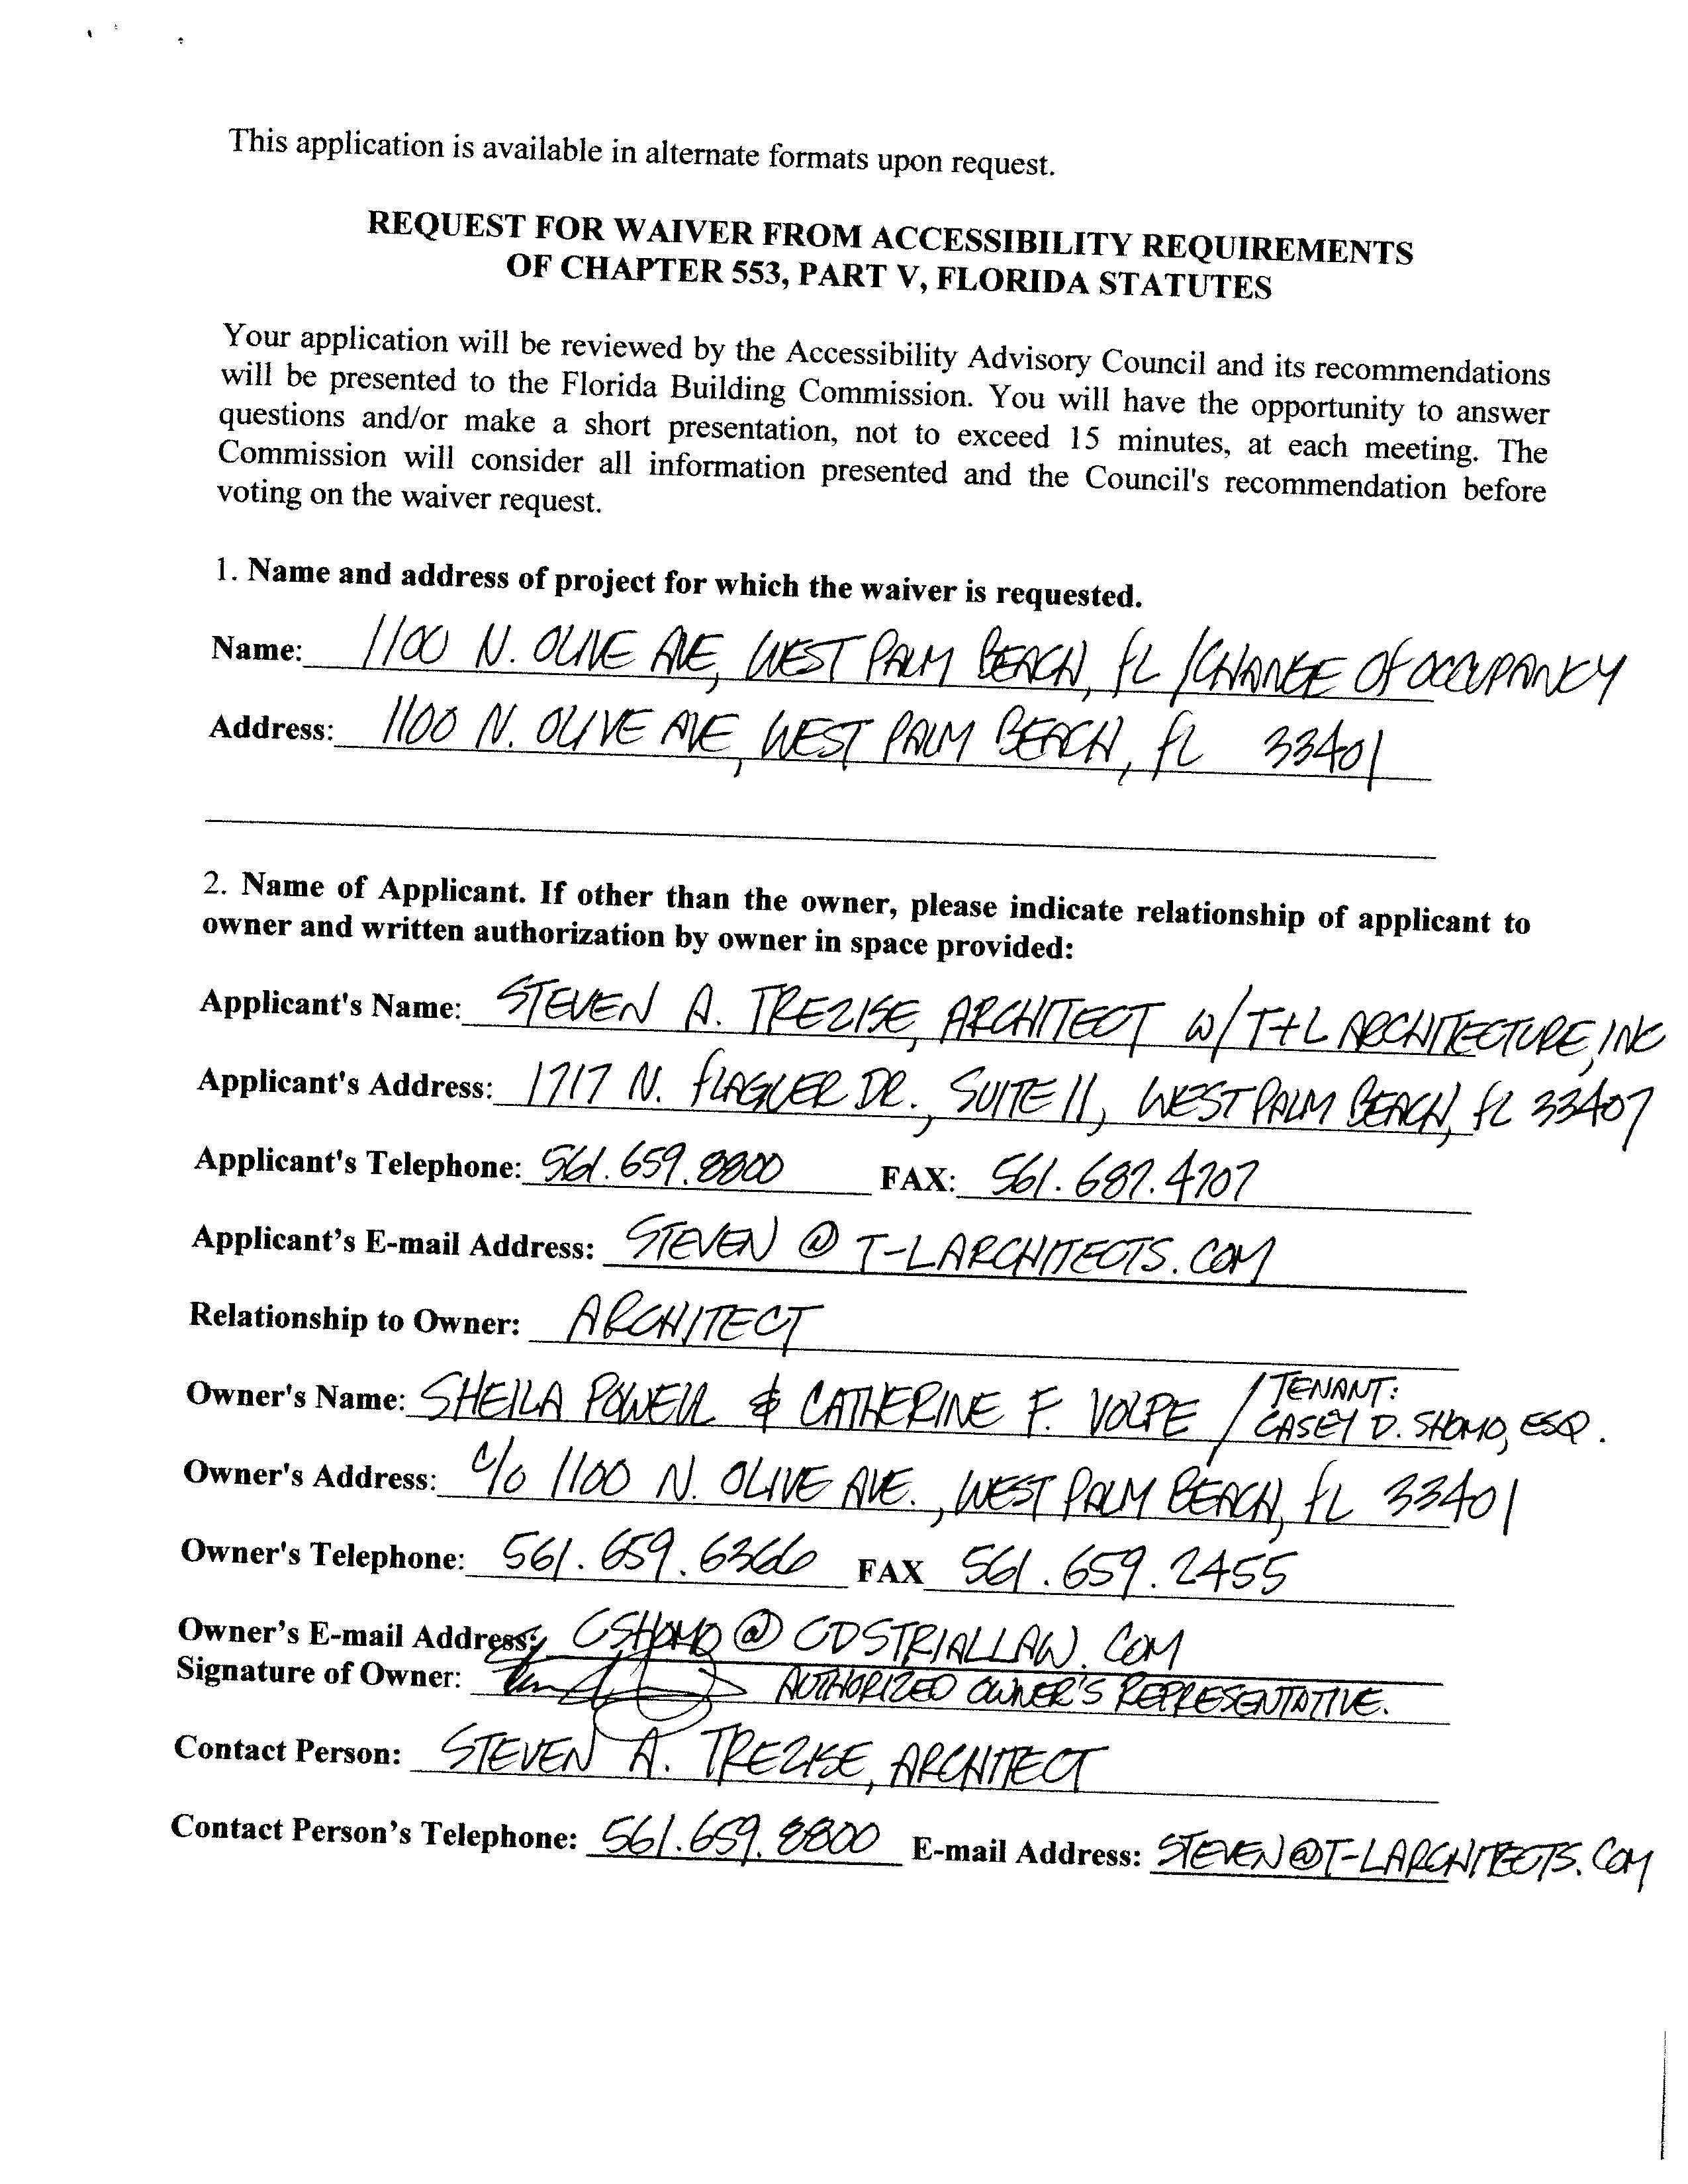 This application is available in alternate formats upon request.
REQUEST FOR WAIVER FROM ACCESSIBILITY REQUIREMENTS
OF CHAPTER 553, PART V, FLORIDA STATUTES
Your application will be reviewed by the Accessibility Advisory Council and its recommendations
will be presented to the Florida Building Commission. You will have the opportunity to answer
questions and/or make a short presentation, not to exceed 15 minutes, at each meeting. The
Commission will consider all information presented and the Council's recommendation before
voting on the waiver request.
1. Name and address of project for which the waiver is requested.
Name: 1100 N. OLIVE AVE, WEST PALM BEACH, FL /CHANGE OF OCCUPANCY
Address: 1100 N. OLIVE AVE, WEST PALM BEACH, FL 33401
2. Name of Applicant. If other than the owner, please indicate relationship of applicant to
owner and written authorization by owner in space provided:
Applicant's Name: STEVEN A. TREZISE, ARCHITECT W/ T+L ARCHITECTURE, INC
Applicant's Address: 1717 N. FLAGLER DR., SUITE 11, WEST PALM BEACH, FL 33407
Applicant's Telephone: 561.659.8800 FAX: 561.687.4707
Applicant's E-mail Address: STEVEN @ T-LARCHITECTS.COM
Relationship to Owner: ARCHITECT
Owner's Name: SHEILA POWELL & CATHERINE F. VOLPE / TENANT: CASEY D. SHOMO, ESQ.
Owner's Address: C/O 1100 N. OLIVE AVE., WEST PALM BEACH, FL 33401
Owner's Telephone: 561.659.6366 FAX 561.659.2455
Owner's E-mail Address: CSHOMO @ CDSTRIALLAW.COM
Signature of Owner: AUTHORIZED OWNER'S REPRESENTATIVE.
Contact Person: STEVEN A. TREZISE, ARCHITECT
Contact Person's Telephone: 561.659.8800 E-mail Address: STEVEN@T-LARCHITECTS.COM